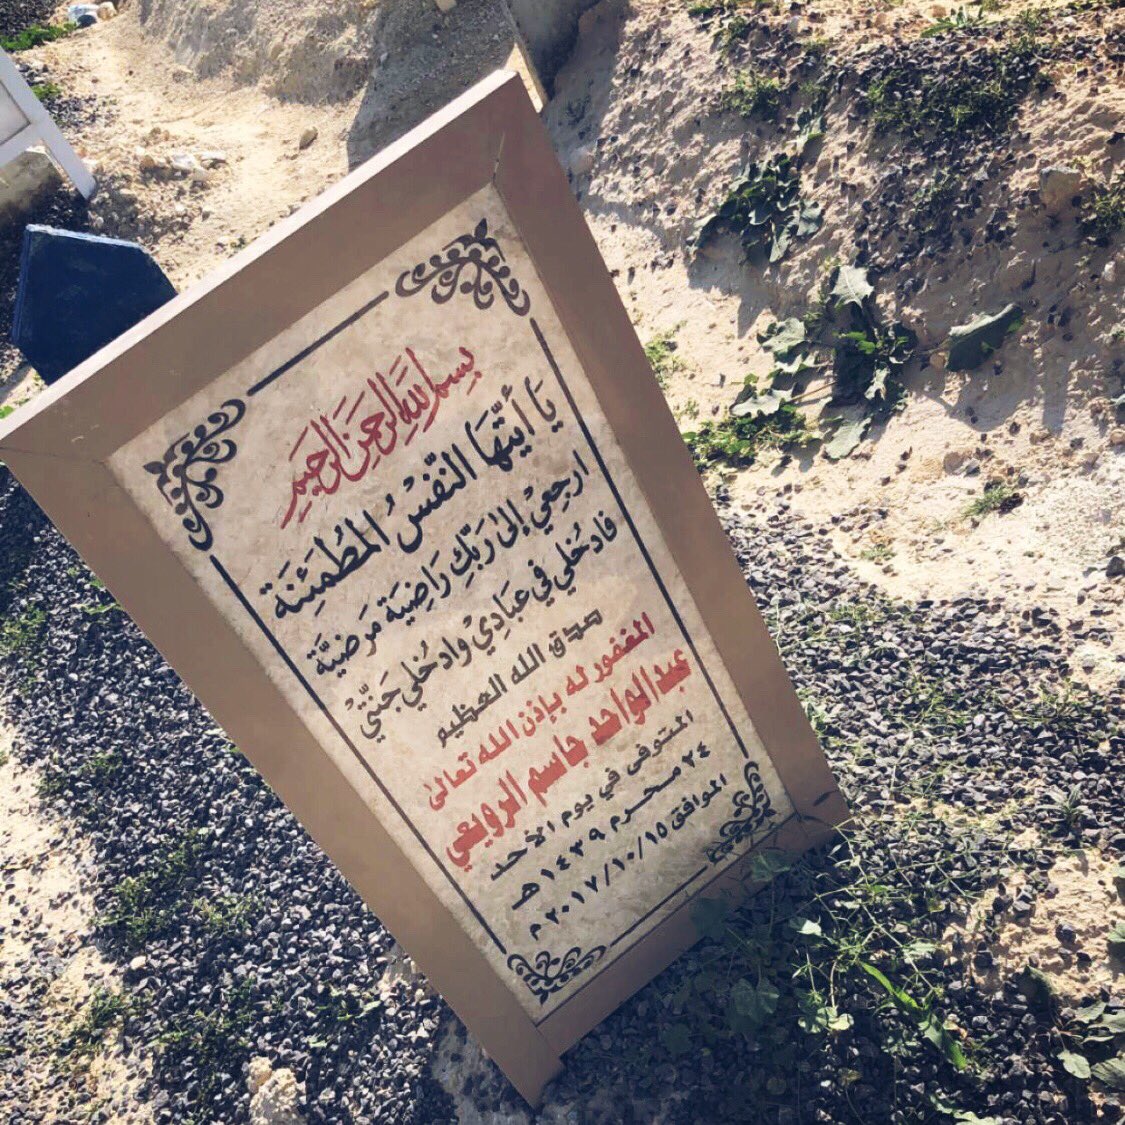 بِسْمِ اللَّهِ الرَّحْمَنِ الرَّحِيمِ
يَا أَيَّتُهَا النَّفْسُ المُطْمَئِنَة
ارجِعِيْ إلىٰ رَبِّكِ رَاضِيَة مَرضيَّة
فادخُلي في عِبَادِيْ وادخُلي جَنَّتِيْ
صدق الله العظيم
المغفور له بإذن الله تعالىٰ
عبدالواحد جاسم الرويعي
المتوفى في يوم الأحد
٢٤ محرم ١٤٣٩ هـ
الموافق ٢٠١٧/١٠/١٥م